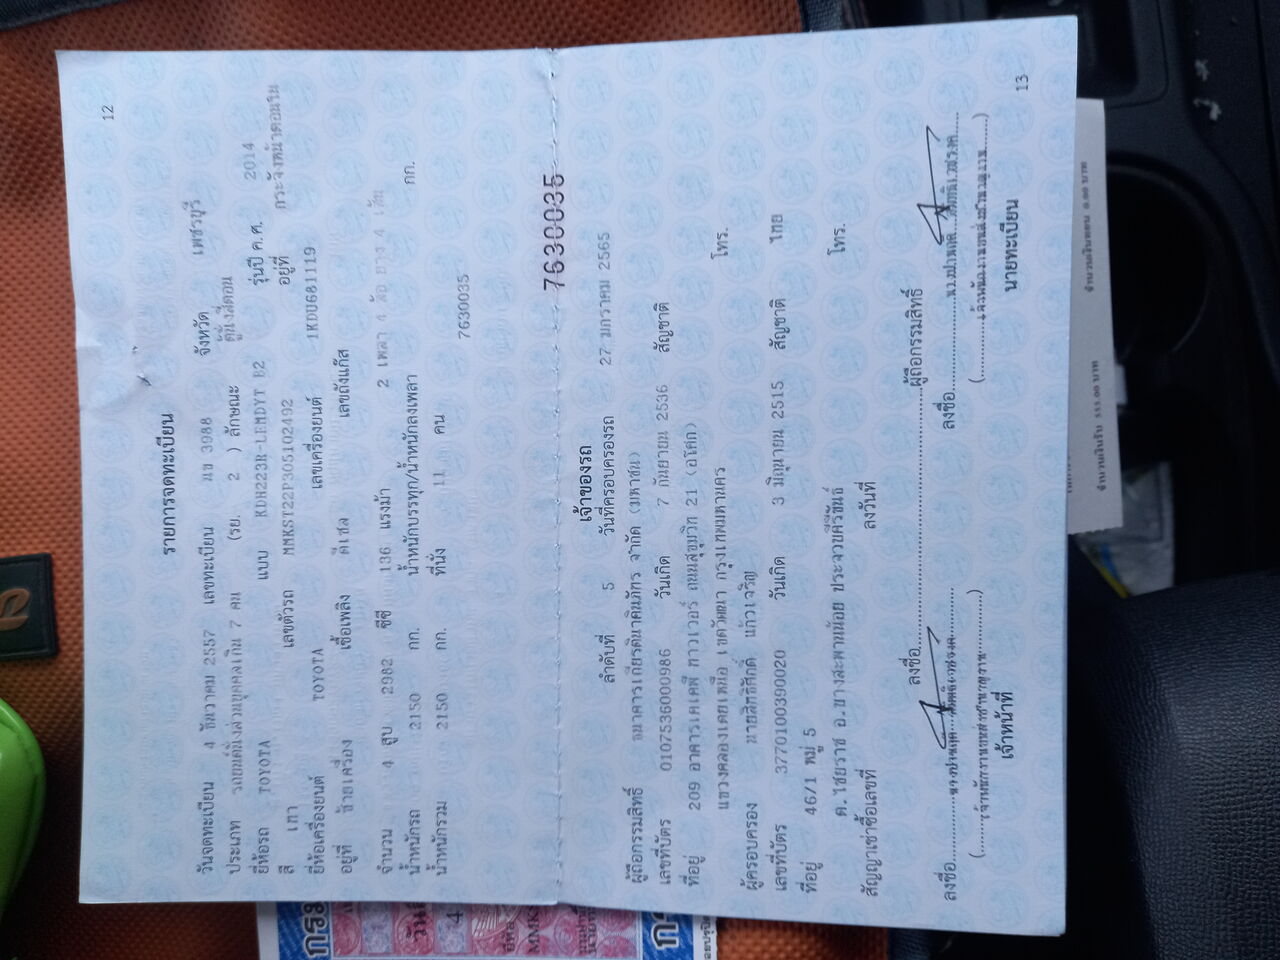 12
รายการจดทะเบียน
วันจดทะเบียน 4 ธันวาคม 2557 เลขทะเบียน นข 3988 จังหวัด เพชรบุรี
ประเภท รถยนต์นั่งส่วนบุคคลเกิน 7 คน (รย. 2 ) ลักษณะ ตู้นั่งสี่ตอน
ยี่ห้อรถ TOYOTA แบบ KDH223R-LEMDYT B2 รุ่นปี ค.ศ. 2014
สี เทา เลขตัวรถ MMKST22P305102492 อยู่ที่ กระจังหน้าตอนใน
ยี่ห้อเครื่องยนต์ TOYOTA เลขเครื่องยนต์ 1KDU681119
อยู่ที่ ซ้ายเครื่อง เชื้อเพลิง ดีเซล เลขถังแก๊ส
จำนวน 4 สูบ 2982 ซีซี 136 แรงม้า 2 เพลา 4 ล้อ ยาง 4 เส้น
น้ำหนักรถ 2150 กก. น้ำหนักบรรทุก/น้ำหนักลงเพลา กก.
น้ำหนักรวม 2150 กก. ที่นั่ง 11 คน
7630035
7630035
เจ้าของรถ
ลำดับที่ 5 วันที่ครอบครองรถ 27 มกราคม 2565
ผู้ถือกรรมสิทธิ์ ธนาคารเกียรตินาคินภัทร จำกัด (มหาชน)
เลขที่บัตร 0107536000986 วันเกิด 7 กันยายน 2536 สัญชาติ
ที่อยู่ 209 อาคารเคเคพี ทาวเวอร์ ถนนสุขุมวิท 21 (อโศก)
แขวงคลองเตยเหนือ เขตวัฒนา กรุงเทพมหานคร โทร.
ผู้ครอบครอง นายสิทธิศักดิ์ แก้วเจริญ
เลขที่บัตร 3770100390020 วันเกิด 3 มิถุนายน 2515 สัญชาติ ไทย
ที่อยู่ 46/1 หมู่ 5
ต.ไชยราช อ.บางสะพานน้อย ประจวบคีรีขันธ์ โทร.
สัญญาเช่าซื้อเลขที่ ลงวันที่
ลงชื่อ ผู้ถือกรรมสิทธิ์
ลงชื่อ ลงชื่อ
เจ้าหน้าที่ นายทะเบียน
13
จำนวนเงินรับ 515.00 บาท จำนวนเงินทอน 0.00 บาท
กรม
วัน
4
ยี่ห้อ
MMK
กร